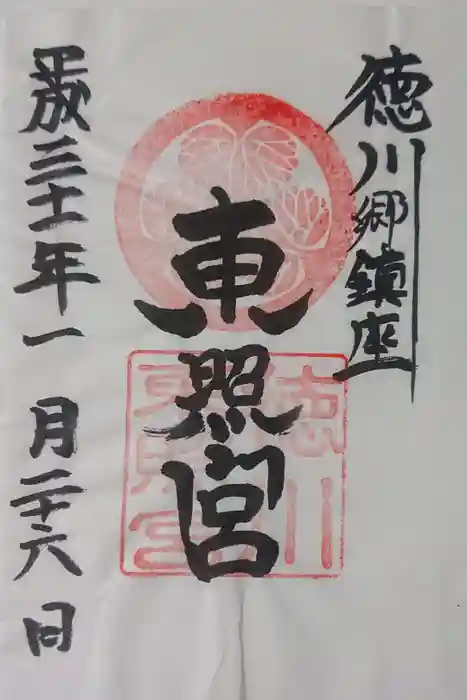 徳川郷鎮座
東照宮
平成三十一年一月二十六日
徳川
東照宮